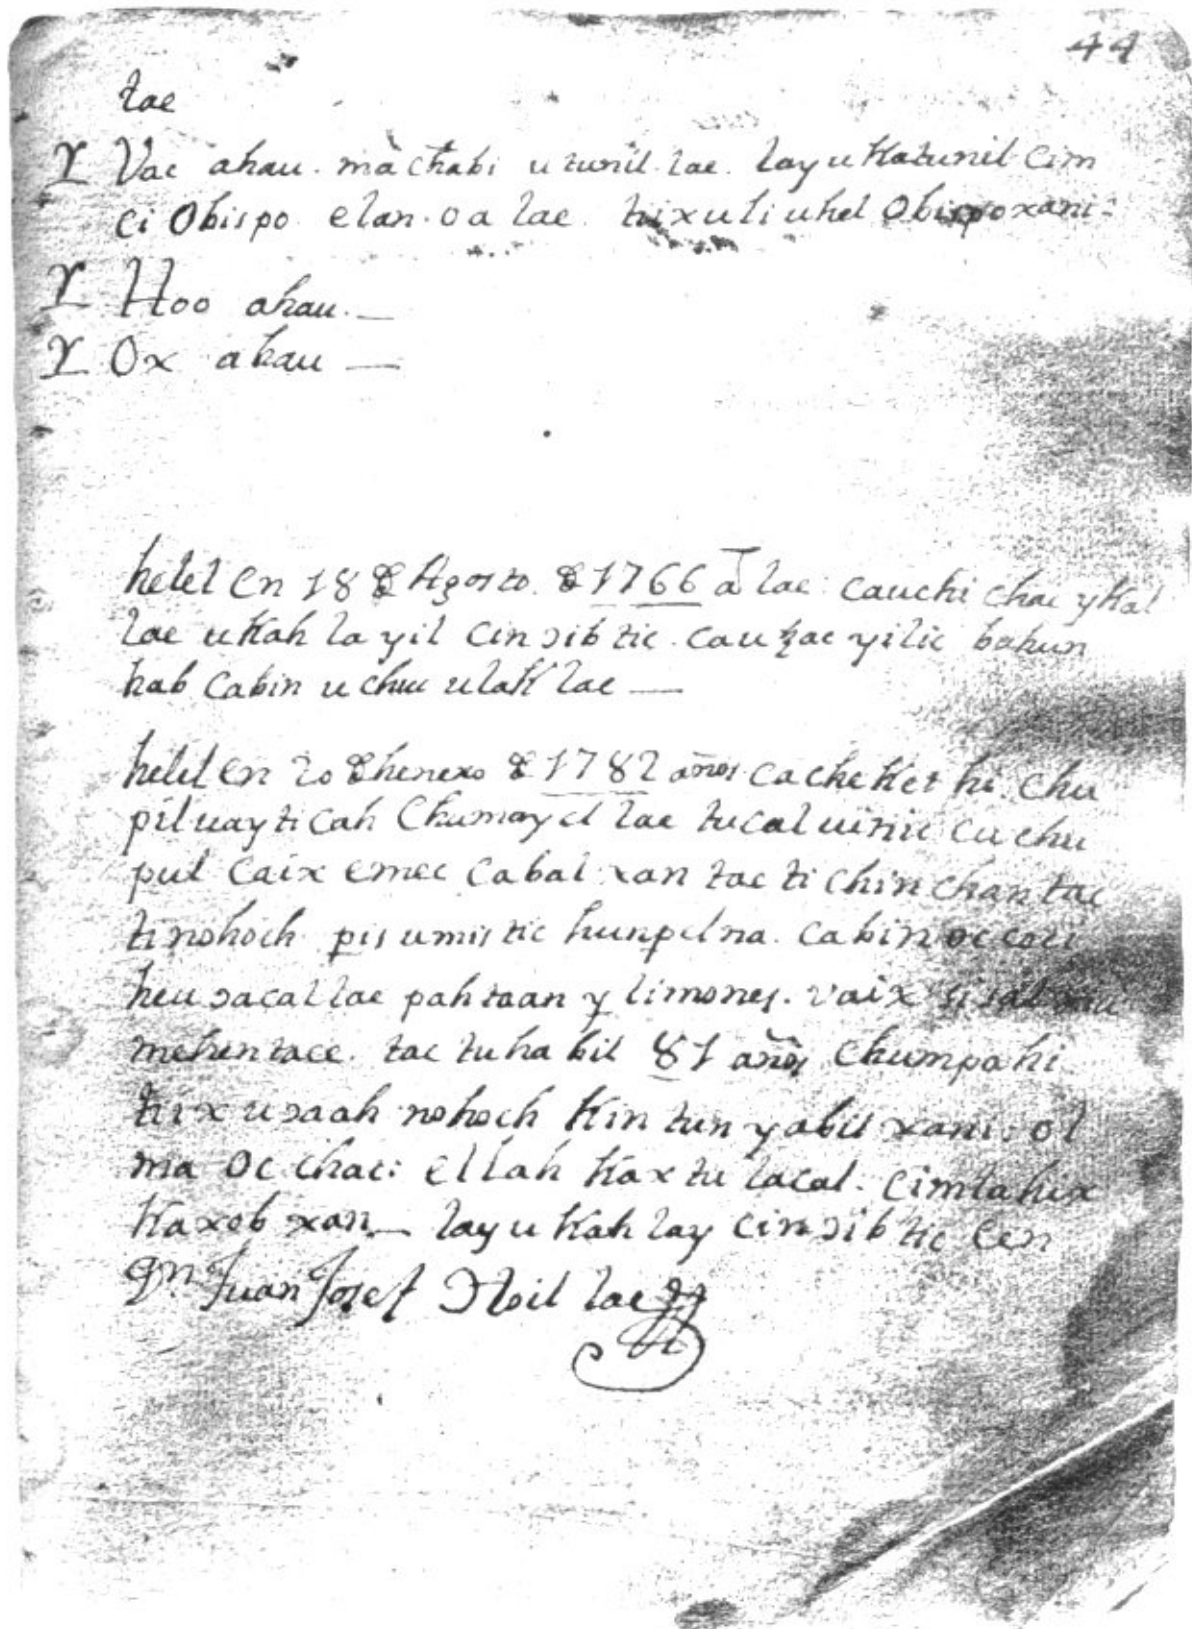 44
lae
Y Vac ahau. mà chabi u tunil. lae. lay u Katunil. Cim
ci Obispo. elan. oa lae. tix uli uhel Obispo xani.
Y Hoo ahau. —
Y Ox ahau —
helel en 18 de Agosto. de 1766 a lae: cauchi chac y Kal
lae u Kah la yil cin ɔib tic. Ca u ɔac yilic bahun
hab cabin u chuu ulaK lae —
helel en 20 de henero de 1782 años. ca che Ket hi. chu
pil uay ti cah Chumayel lae tucal uinic cu chu
pul caix emec cabal. xan tac ti chin chan tac
ti nohoch pis u mis tic hunpel na. cabin oc
heu ɔacal lae pah taan y limones. vaix
mehen tace. tac tu ha bil 81 años chumpahi
tix u ɔaah nohoch Kin tun yabil xani. ol
ma oc chac: ellah Kax tu lacal. cimlahix
Kaxob xan — lay u Kah lay cin ɔib tic cen
Dn. Juan Josef Hoil lae